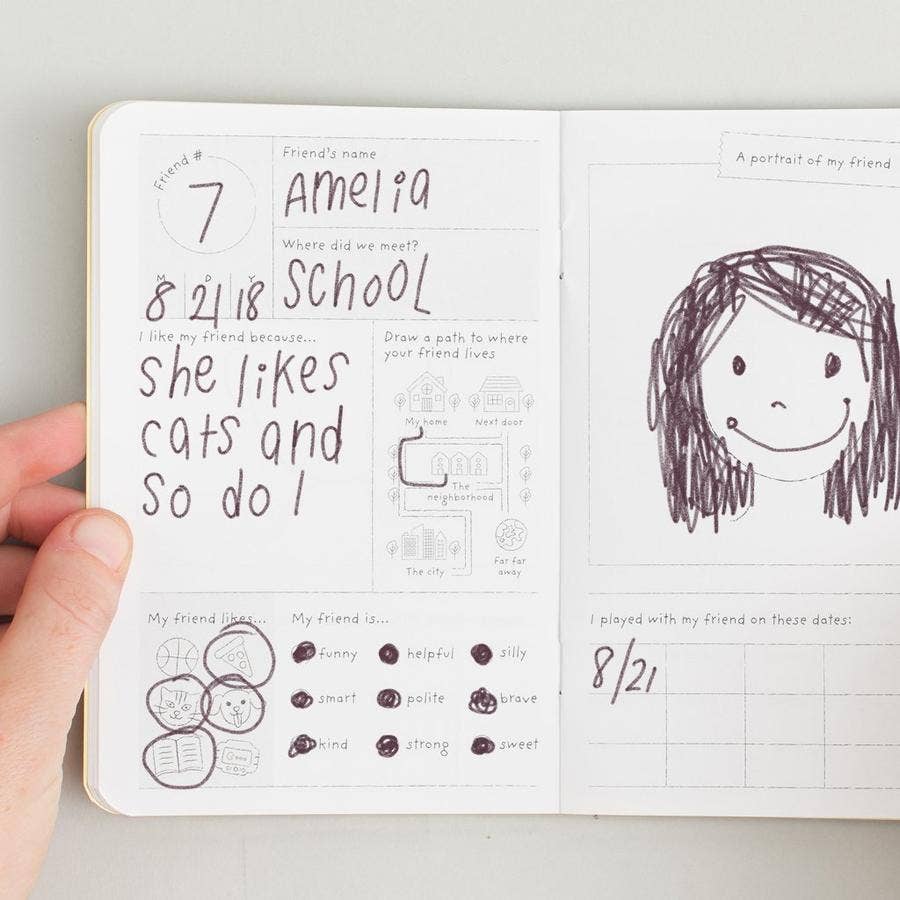 Friend #
7
M D Y
8 21 18
Friend's name
Amelia
Where did we meet?
SCHOOL
I like my friend because...
She likes
cats and
So do I
Draw a path to where
your friend lives
My home
Next door
The
neighborhood
The city
Far far
away
My friend likes...
My friend is...
funny
helpful
silly
smart
polite
brave
kind
strong
sweet
A portrait of my friend
I played with my friend on these dates:
8/21